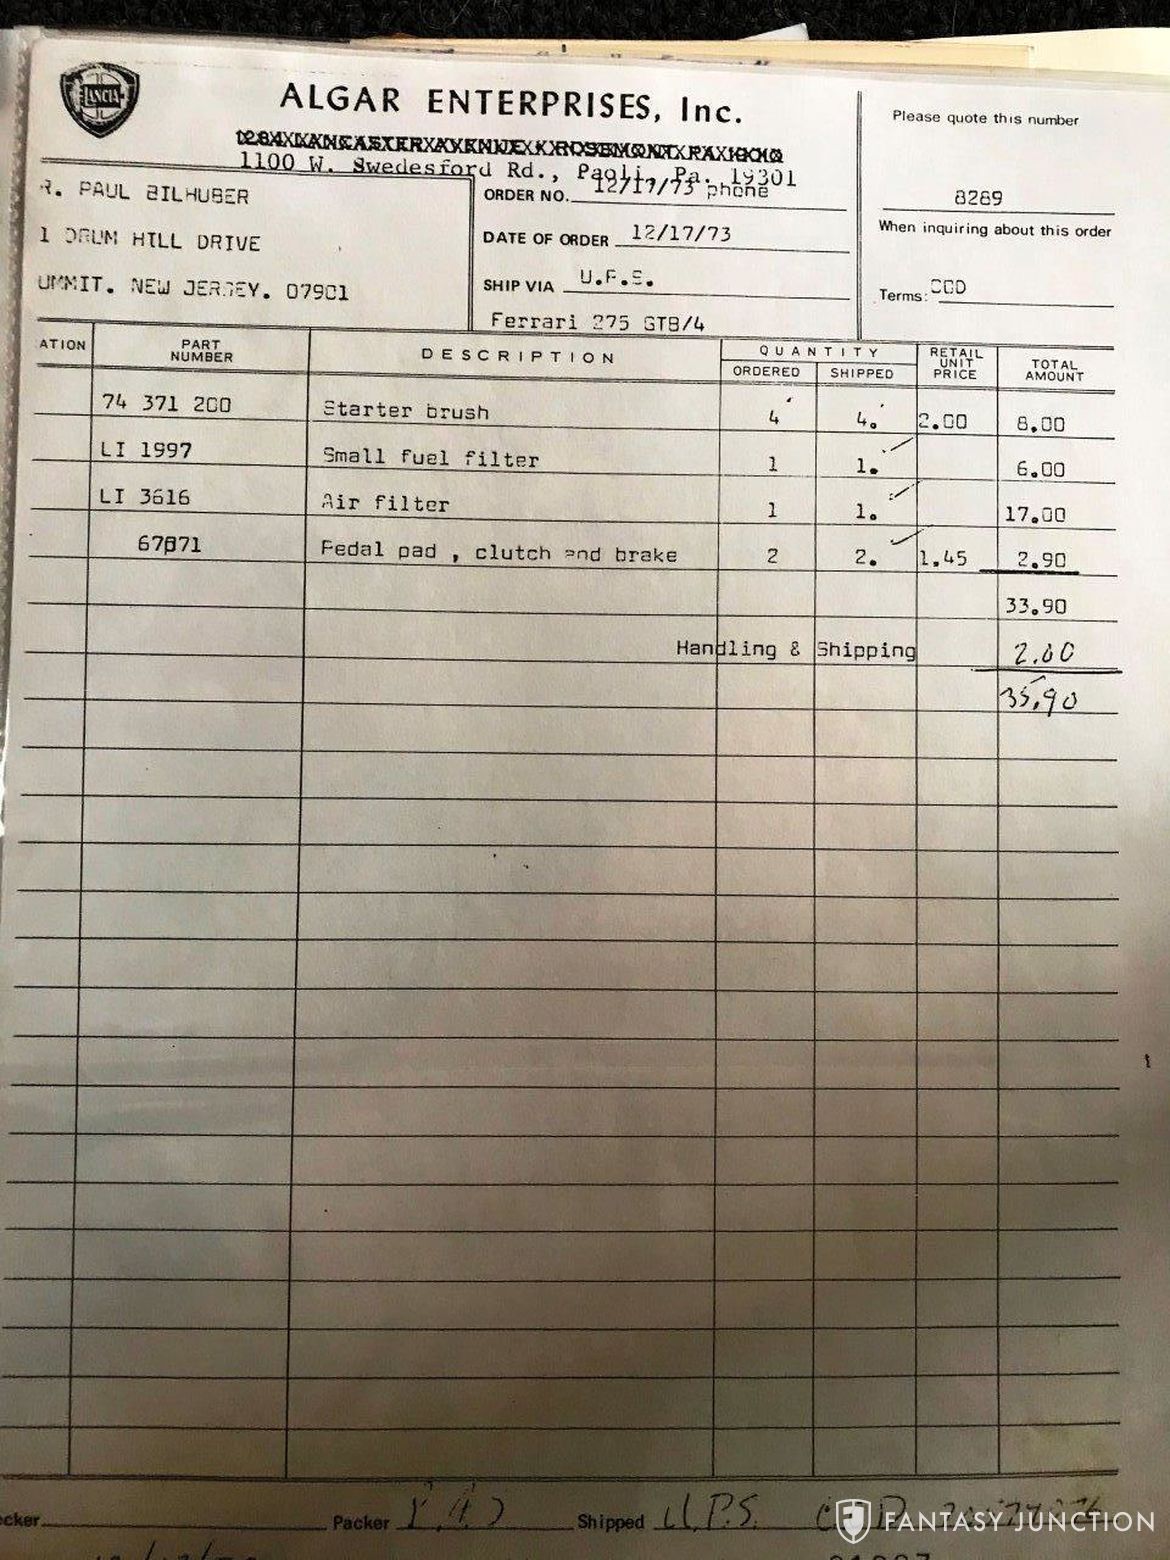 LANCIA
ALGAR ENTERPRISES, Inc.
1100 W. Swedesford Rd., Paoli, Pa. 19301
Please quote this number
8289
When inquiring about this order
Terms: COD
R. PAUL BILHUBER
1 DRUM HILL DRIVE
UMMIT. NEW JERSEY. 07901
ORDER NO. 12/17/73 phone
DATE OF ORDER 12/17/73
SHIP VIA U.P.S.
Ferrari 275 GTB/4
ATION PART NUMBER DESCRIPTION QUANTITY ORDERED SHIPPED RETAIL UNIT PRICE TOTAL AMOUNT
74 371 200 Starter brush 4 4. 2.00 8.00
LI 1997 Small fuel filter 1 1. 6.00
LI 3616 Air filter 1 1. 17.00
67871 Pedal pad , clutch and brake 2 2. 1.45 2.90
33.90
Handling & Shipping 2.00
35.90
cker Packer Shipped U.P.S.
FANTASY JUNCTION